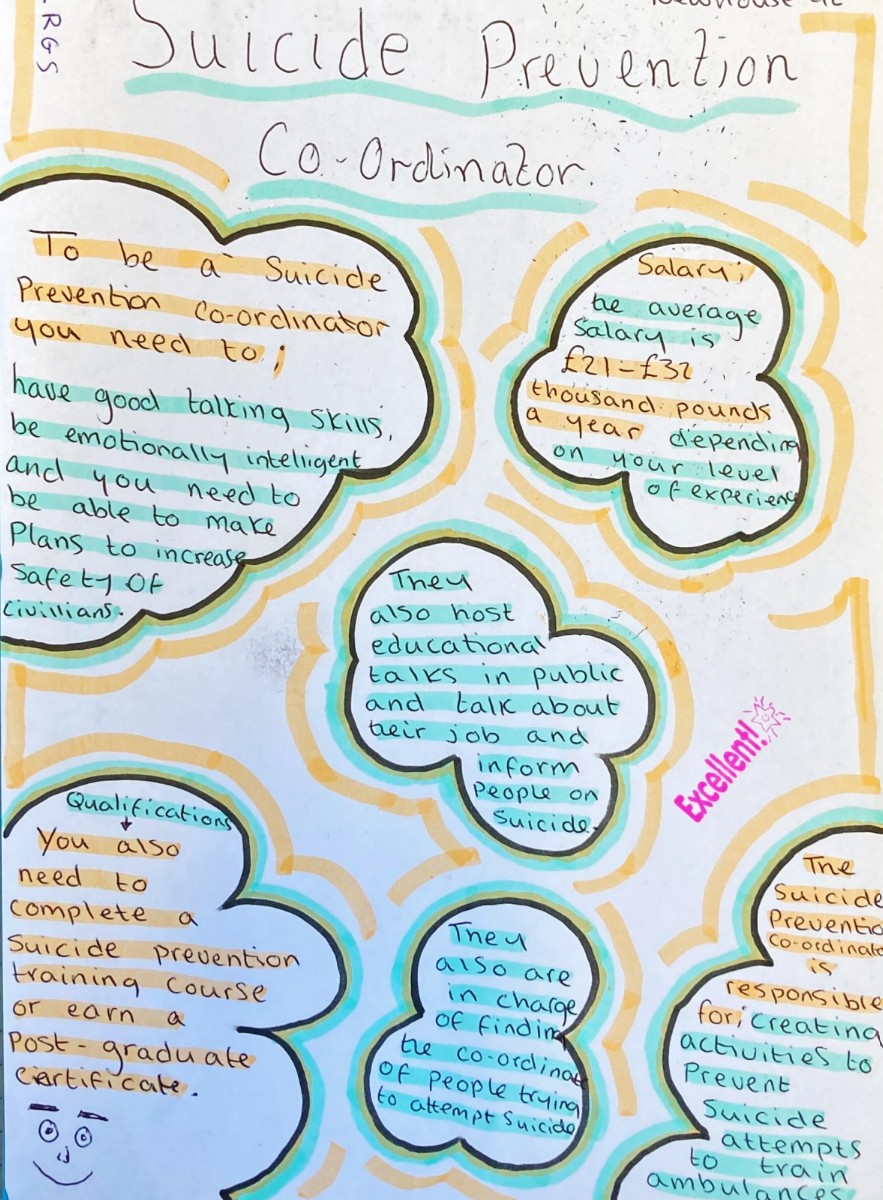 RGS
Newhouse
Suicide Prevention
Co-Ordinator.
To be a Suicide
Prevention co-ordinator
you need to;
have good talking skills,
be emotionally intelligent
and you need to
be able to make
Plans to increase
Safety Of
Civillians.
Salary;
the average
Salary is
£21-£32
thousand pounds
a year depending
on your level
of experience
They
also host
educational
talks in public
and talk about
their job and
inform
People on
Suicide.
Excellent!
Qualifications
You also
need to
complete a
Suicide prevention
training course
or earn a
Post-graduate
Certificate.
They
also are
in charge
of finding
the co-ordinat
of people trying
to attempt Suicide
The
Suicide
Preventio
co-ordinato
is
responsible
for; creating
activities to
Prevent
Suicide
attempts
to train
ambulances